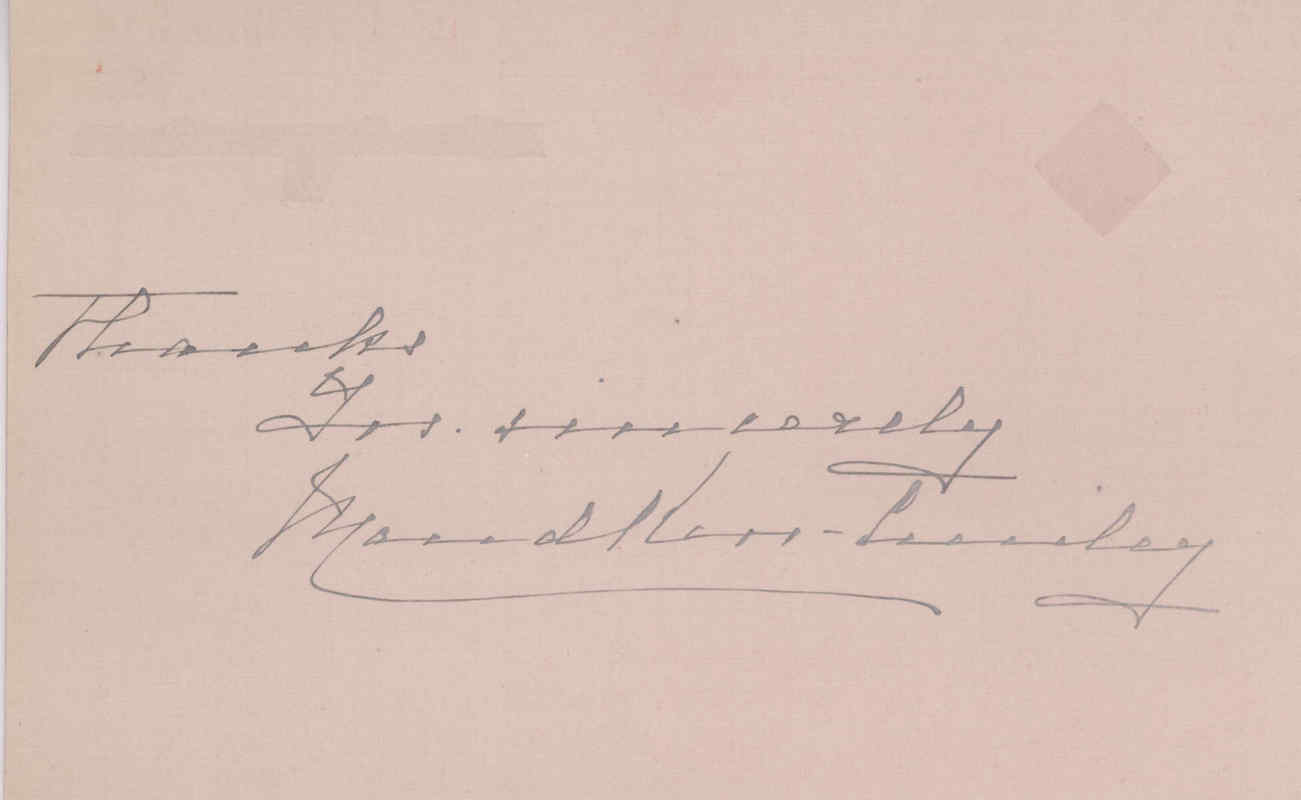 Thanks
Yrs. sincerely
Maud Kerr-Smiley